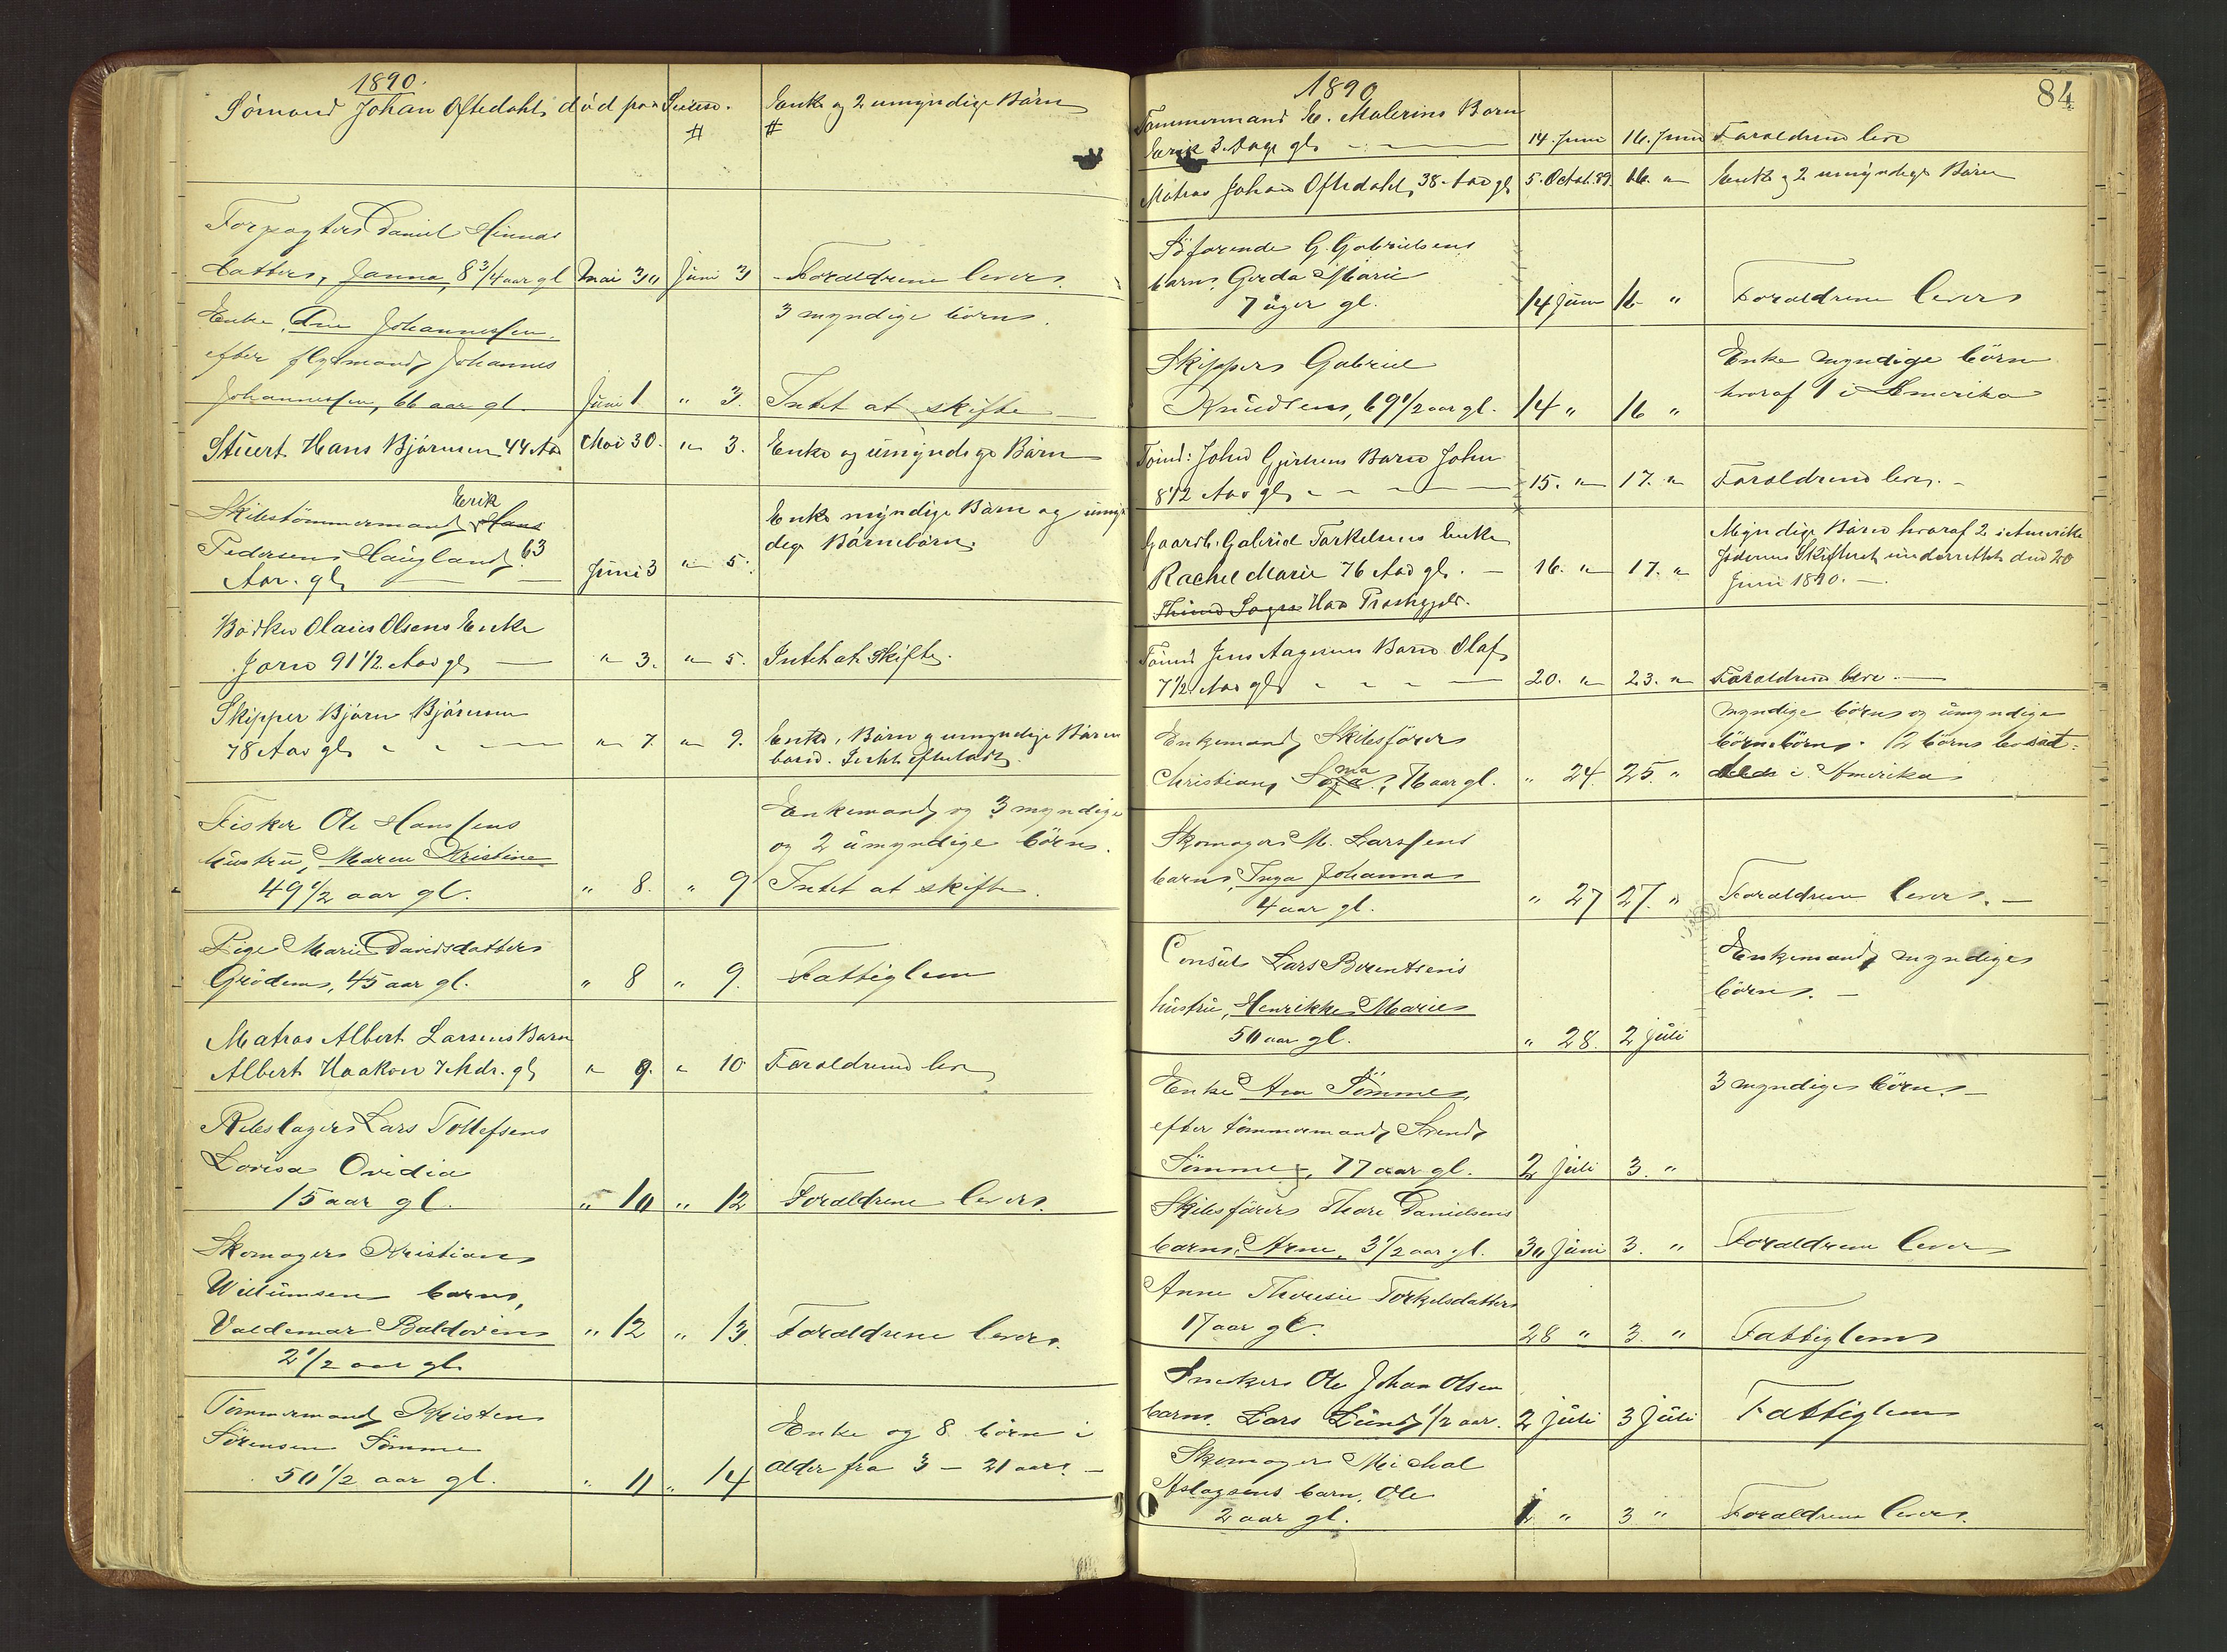 1890.
Sömand Johan Oftedahl, död paa Søen. Enke og 2 umyndige Börn
# #
Forpagter Daniel Hinnas
datter, Janna, 8 3/4 aar gl Mai 30 Juni 3 Forældrene lever.
Enke, Ane Johannessen, 3 myndige börn.
efter flydmand Johannes
Johannessen, 66 aar gl. Juni 1 " 3. Intet at skifte
Stuert Hans Björnsen 44 Aar Mai 30. " 3. Enke og umyndige Börn
Erik
Skibstömmermand Hans Enke myndige Börn og umyn
Pedersen Haugland, 63 dige Börnebörn.
Aar. gl Juni 3 " 5.
Bödker Olaus Olsens Enke
Jorin 91 1/2 Aar gl " 3. " 5. Intet at Skifte.
Skipper Björn Björnsen
78 Aar gl " 7. " 9. Enke, Börn og umyndige Börne
börn. Intet efterladt.
Fisker Ole Hanssens Enkemand og 3 myndige
hustru, Maren Kristine og 2 umyndige börn.
49 1/2 aar gl. " 8. " 9 Intet at skifte.
Pige Marie Davidsdatter
Grödem, 45 aar gl. " 8 " 9. Fattiglem
Matros Albert Larsens Barn
Albert Haakon 7 Mdr. gl " 9. " 10 Forældrene lever
Rebslager Lars Tollefsens
Lovisa Ovidia
15 aar gl. " 10 " 12 Forældrene lever.
Skomager Kristian
Willumsen barn,
Valdemar Baldovin " 12 " 13. Forældrene lever.
2 1/2 aar gl.
Tömmermand Kristen
Sörensen Sömme Enke og 8 börn i
50 1/2 aar gl. " 11 " 14 Alder fra 3 – 21 aar. –
84
1890
Tömmermand E. Malerins Barn
Erik 3. Dage gl 14. Juni 16. Juni Forældrene leve
Matros Johan Oftedahl, 38. Aar gl 5. Octob. 89. 16. " Enke og 2 umyndige Börn
Söfarende G. Gabrielsens
barn, Gerda Marie
7 uger gl. 14 Juni 16 " Forældrene lever
Skipper Gabriel Enke myndige börn
Knudsen, 69 1/2 aar gl. 14 " 16 " hvoraf 1 i Amerika
Tömd: John Gjertsens Barn John
8 1/2 Aar gl 15. " 17. " Forældrene lever. –
Gaardb. Gabriel Torkelsens Enke Myndige Börn hvoraf 2 i Amerika
Rachel Marie 76 Aar gl. 16. " 17. " Jederens Skifteret underrettet den 20
Haa Præstegjeld. Juni 1890. –
Tömd Jens Aagesens Barn Olaf
7 1/2 Aar gl 20. " 23. " Forældrene leve. –
Enkemand Skibsförer myndige börn og umyndige
ma börnebörn. 12 börn bosat:
Christian, 76 aar gl. " 24. 25. " i Amerika
Skomager M. Larssens
barn, Inga Johanna
4 aar gl. " 27 27. " Forældrene lever. –
Consul Lars Berentsens Enkemand, myndige
hustru, Henrikke Marie börn. –
50 aar gl. " 28. 2 Juli
Enke Ane Sömme, 3 myndige börn. –
efter tömmermand Svend
Sömme, 77 aar gl. 2 Juli 3. "
Skibsförer Thore Danielsens
barn, Arne, 3 1/2 aar gl. 30 Juni 3. " Forældrene lever
Anne Theresie Torkelsdatter
17 aar gl. 28 " 3. " Fattiglem
Snekker Ole Johan Olsen
barn. Lars Lund, 1/2 aar. 2 Juli 3 Juli Fattiglem
Skomager Michal
Aslagsens barn, Ole
2 aar gl. 1 " 3 " Forældrene lever.